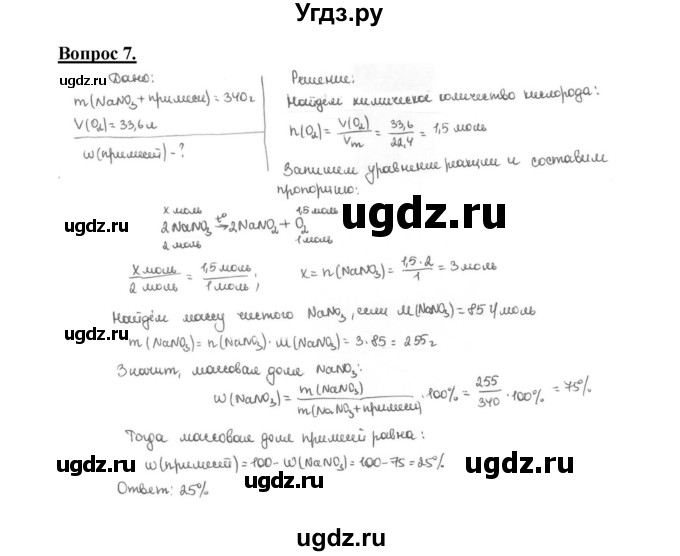 Угдз.ру
Вопрос 7.
ugdz.ru
Дано:
m(NaNO₃+примеси)=340г
V(O₂)=33,6л
w(примесей)-?
Решение:
Найдём химическое количество кислорода:
n(O₂)=V(O₂)/Vm=33,6/22,4=1,5 моль
Запишем уравнение реакции и составим
пропорцию:
ugdz.ru
ugdz.ru
x моль 1,5 моль
2NaNO₃ t°→ 2NaNO₂ + O₂
2 моль 1 моль
x моль/2 моль = 1,5 моль/1 моль; x=n(NaNO₃)=1,5·2/1=3 моль
ugdz.ru
ugdz.ru
Найдём массу чистого NaNO₃, если M(NaNO₃)=85 г/моль
m(NaNO₃)=n(NaNO₃)·M(NaNO₃)=3·85=255г
Значит, массовая доля NaNO₃:
w(NaNO₃)=m(NaNO₃)/m(NaNO₃+примеси)·100%=255/340·100%=75%
Тогда массовая доля примесей равна:
w(примесей)=100-w(NaNO₃)=100-75=25%
Ответ: 25%
ugdz.ru
ugdz.ru
ugdz.ru
ugdz.ru